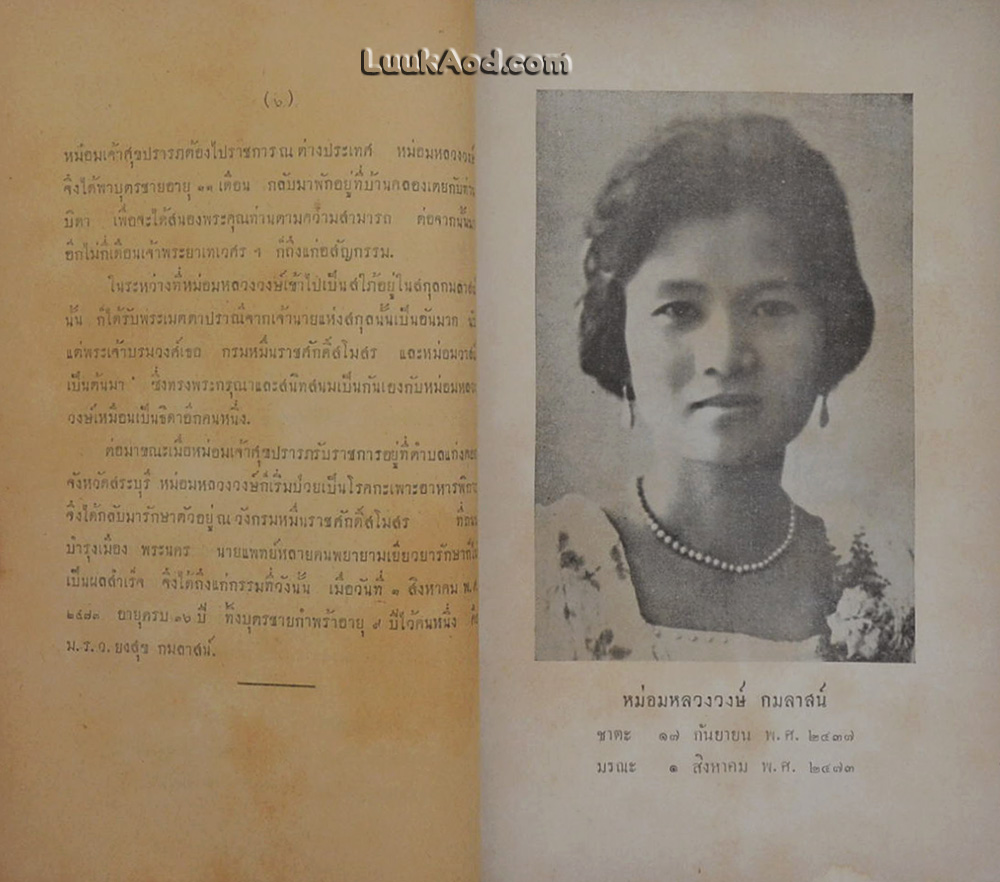 LuukAod.com
(๖)
หม่อมเจ้าสุขปรารภต้องไปราชการณต่างประเทศ หม่อมหลวงวงษ์
จึงได้พาบุตรชายอายุ ๑๑ เดือน กลับมาพักอยู่ที่บ้านคลองเตยกับท่าน
บิดา เพื่อจะได้สนองพระคุณท่านตามความสามารถ ต่อจากนั้นมา
อีกไม่กี่เดือนเจ้าพระยาเทเวศร ฯ ก็ถึงแก่อสัญกรรม.
ในระหว่างที่หม่อมหลวงวงษ์เข้าไปเป็นสใภ้อยู่ในสกุลกมลาสน์
นั้น ก็ได้รับพระเมตตาปราณีจากเจ้านายแห่งสกุลนั้นเป็นอันมาก
แต่พระเจ้าบรมวงศ์เธอ กรมหมื่นราชศักดิ์สโมสร และหม่อม
เป็นต้นมา ซึ่งทรงพระกรุณาและสนิทสนมเป็นกันเองกับหม่อมหลวง
วงษ์เหมือนเป็นธิดาอีกคนหนึ่ง.
ต่อมาขณะเมื่อหม่อมเจ้าสุขปรารภรับราชการอยู่ที่ตำบลแก่งคอย
จังหวัดสระบุรี หม่อมหลวงวงษ์ก็เริ่มป่วยเป็นโรคกะเพาะอาหารพิการ
จึงได้กลับมารักษาตัวอยู่ ณ วังกรมหมื่นราชศักดิ์สโมสร ที่ถนน
บำรุงเมือง พระนคร นายแพทย์หลายคนพยายามเยียวยารักษาก็ไม่
เป็นผลสำเร็จ จึงได้ถึงแก่กรรมที่วังนั้น เมื่อวันที่ ๑ สิงหาคม พ.ศ.
๒๔๗๓ อายุครบ ๓๖ ปี ทิ้งบุตรชายกำพร้าอายุ ๙ ปีไว้คนหนึ่ง คือ
ม.ร.ว. ยงสุข กมลาสน์.
หม่อมหลวงวงษ์ กมลาสน์
ชาตะ ๑๗ กันยายน พ.ศ. ๒๔๓๗
มรณะ ๑ สิงหาคม พ.ศ. ๒๔๗๓